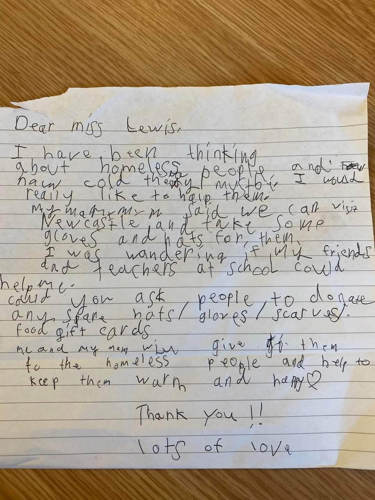 Dear miss Lewis.
I have been thinking
about homeless people and
how cold they must be. I would
really like to help them.
My mam said we can visit
Newcastle and take some
gloves and hats for them.
I was wandering if my friends
and teachers at school could
help me.
could you ask people to donate
any spare hats/gloves/scarves/
food gift cards
me and my mam will give them
to the homeless people and help to
keep them warm and happy♡
Thank you!!
lots of love